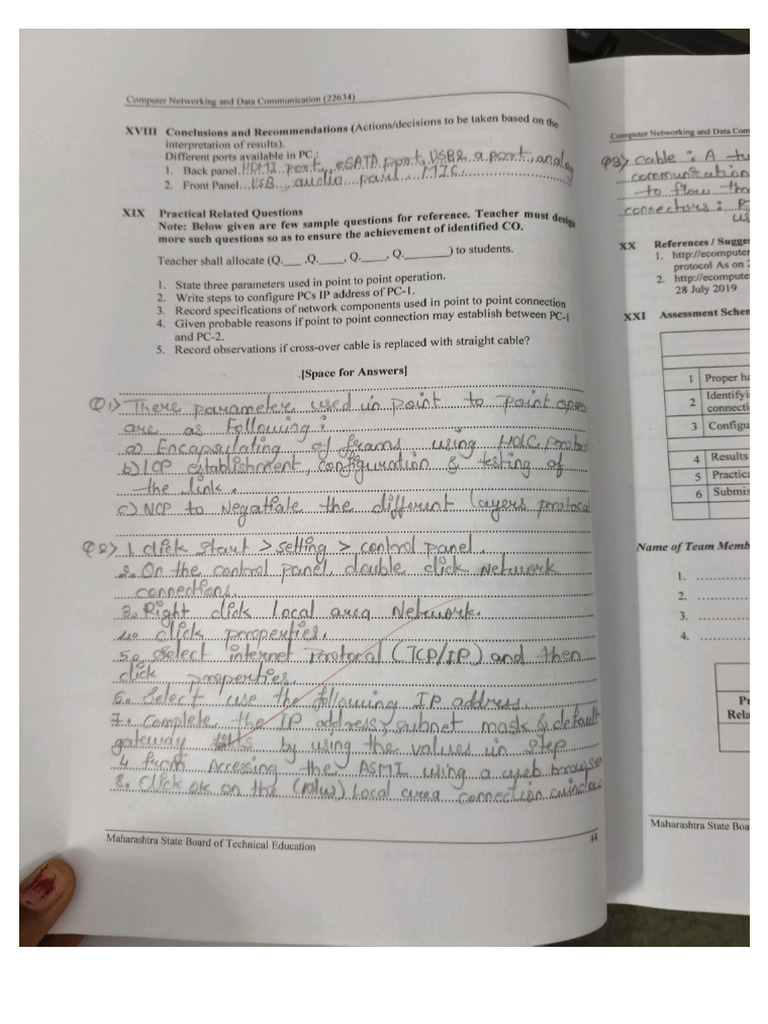 Computer Networking and Data Communication (22634)
XVIII Conclusions and Recommendations (Actions/decisions to be taken based on the
interpretation of results).
Different ports available in PC :
1. Back panel HDMI port, eSATA port, USB2.0 port, analog
2. Front Panel USB audio MIC
XIX Practical Related Questions
Note: Below given are few sample questions for reference. Teacher must design
more such questions so as to ensure the achievement of identified CO.
Teacher shall allocate (Q.___ ,Q.____, Q.____, Q.________) to students.
1. State three parameters used in point to point operation.
2. Write steps to configure PCs IP address of PC-1.
3. Record specifications of network components used in point to point connection
4. Given probable reasons if point to point connection may establish between PC-1
and PC-2.
5. Record observations if cross-over cable is replaced with straight cable?
.[Space for Answers]
Q1) There parameter used in point to point oper
are as following :
a) Encapsulating of frams using HDLC protoc
b) LCP establishment, configuration & testing of
the link.
c) NCP to Negatiate the different layers protocol
Q2) 1. click start > setting > control panel.
2. On the control panel, double click Network
connections.
3. Right click local area Network.
4. click properties.
5. select internet protocol (TCP/IP) and then
click properties.
6. Select use the following IP address.
7. Complete the IP address, subnet mask & default
gateway by using the values in step
4 from Accessing the ASMI using a web browser
8. Click ok on the Local area connection window
Maharashtra State Board of Technical Education
44
Computer Networking and Data Com
Q3) Cable : A tw
communication
to flow tho
connectors :
us
XX References / Sugges
1. http://ecomputer
protocol As on 2
2. http://ecompute
28 July 2019
XXI Assessment Schem
1 Proper ha
2 Identifyi
connecti
3 Configu
4 Results
5 Practica
6 Submis
Name of Team Memb
1. ..............
2. ..............
3. ..............
4. ..............
Pr
Rela
Maharashtra State Boa